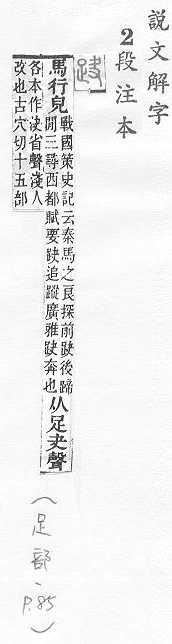 說文解字
2段注本
趹
馬行皃戰國策史記云秦馬之良探前趹後蹄
閒三尋西都賦要趹追蹤廣雅趹奔也从足夬聲
各本作決省聲淺人
改也古穴切十五部
(足部、P.85)